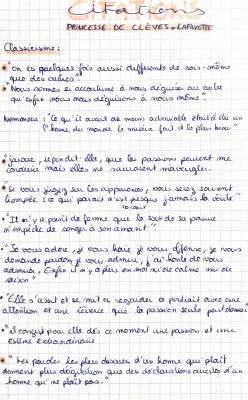 Citations
PRINCESSE DE CLÈVES - LAFAYETTE
Classicisme:
"On est quelques fois aussi différents de soi-même
que des autres"
"Nous sommes si accoutumé à nous déguiser au autre
qu'enfin nous nous déguisons à nous même".
Nemours: "Ce qu'il avait de moins admirable était d'être un
l'homme du monde le mieux fait et le plus beau"
"j'avoue, répondit-elle, que les passions peuvent me
conduire mais elles ne sauraient m'aveugler.
"Si vous jugez sur les apparences, vous serez souvent
trompée : ce qui paraît n'est presque jamais la vérité"
"Il n'y a point de femme que le soin de sa parure
n'empêche de songer à son amant"
"Je vous adore, je vous hais, je vous offense, je vous
demande pardon, je vous admire, j'ai honte de vous
admirer. Enfin il n'y a plus en moi ni de calme ni de
raison"
"Elle s'assit et se mit à regarder ce portrait avec une
attention et une rêverie que la passion seule peut donner"
"il conçut pour elle dès ce moment une passion et une
estime extraordinaire
"Les paroles les plus obscures d'un homme qui plaît
donnent plus d'agitation que des déclarations ouvertes d'un
homme qui ne plaît pas."